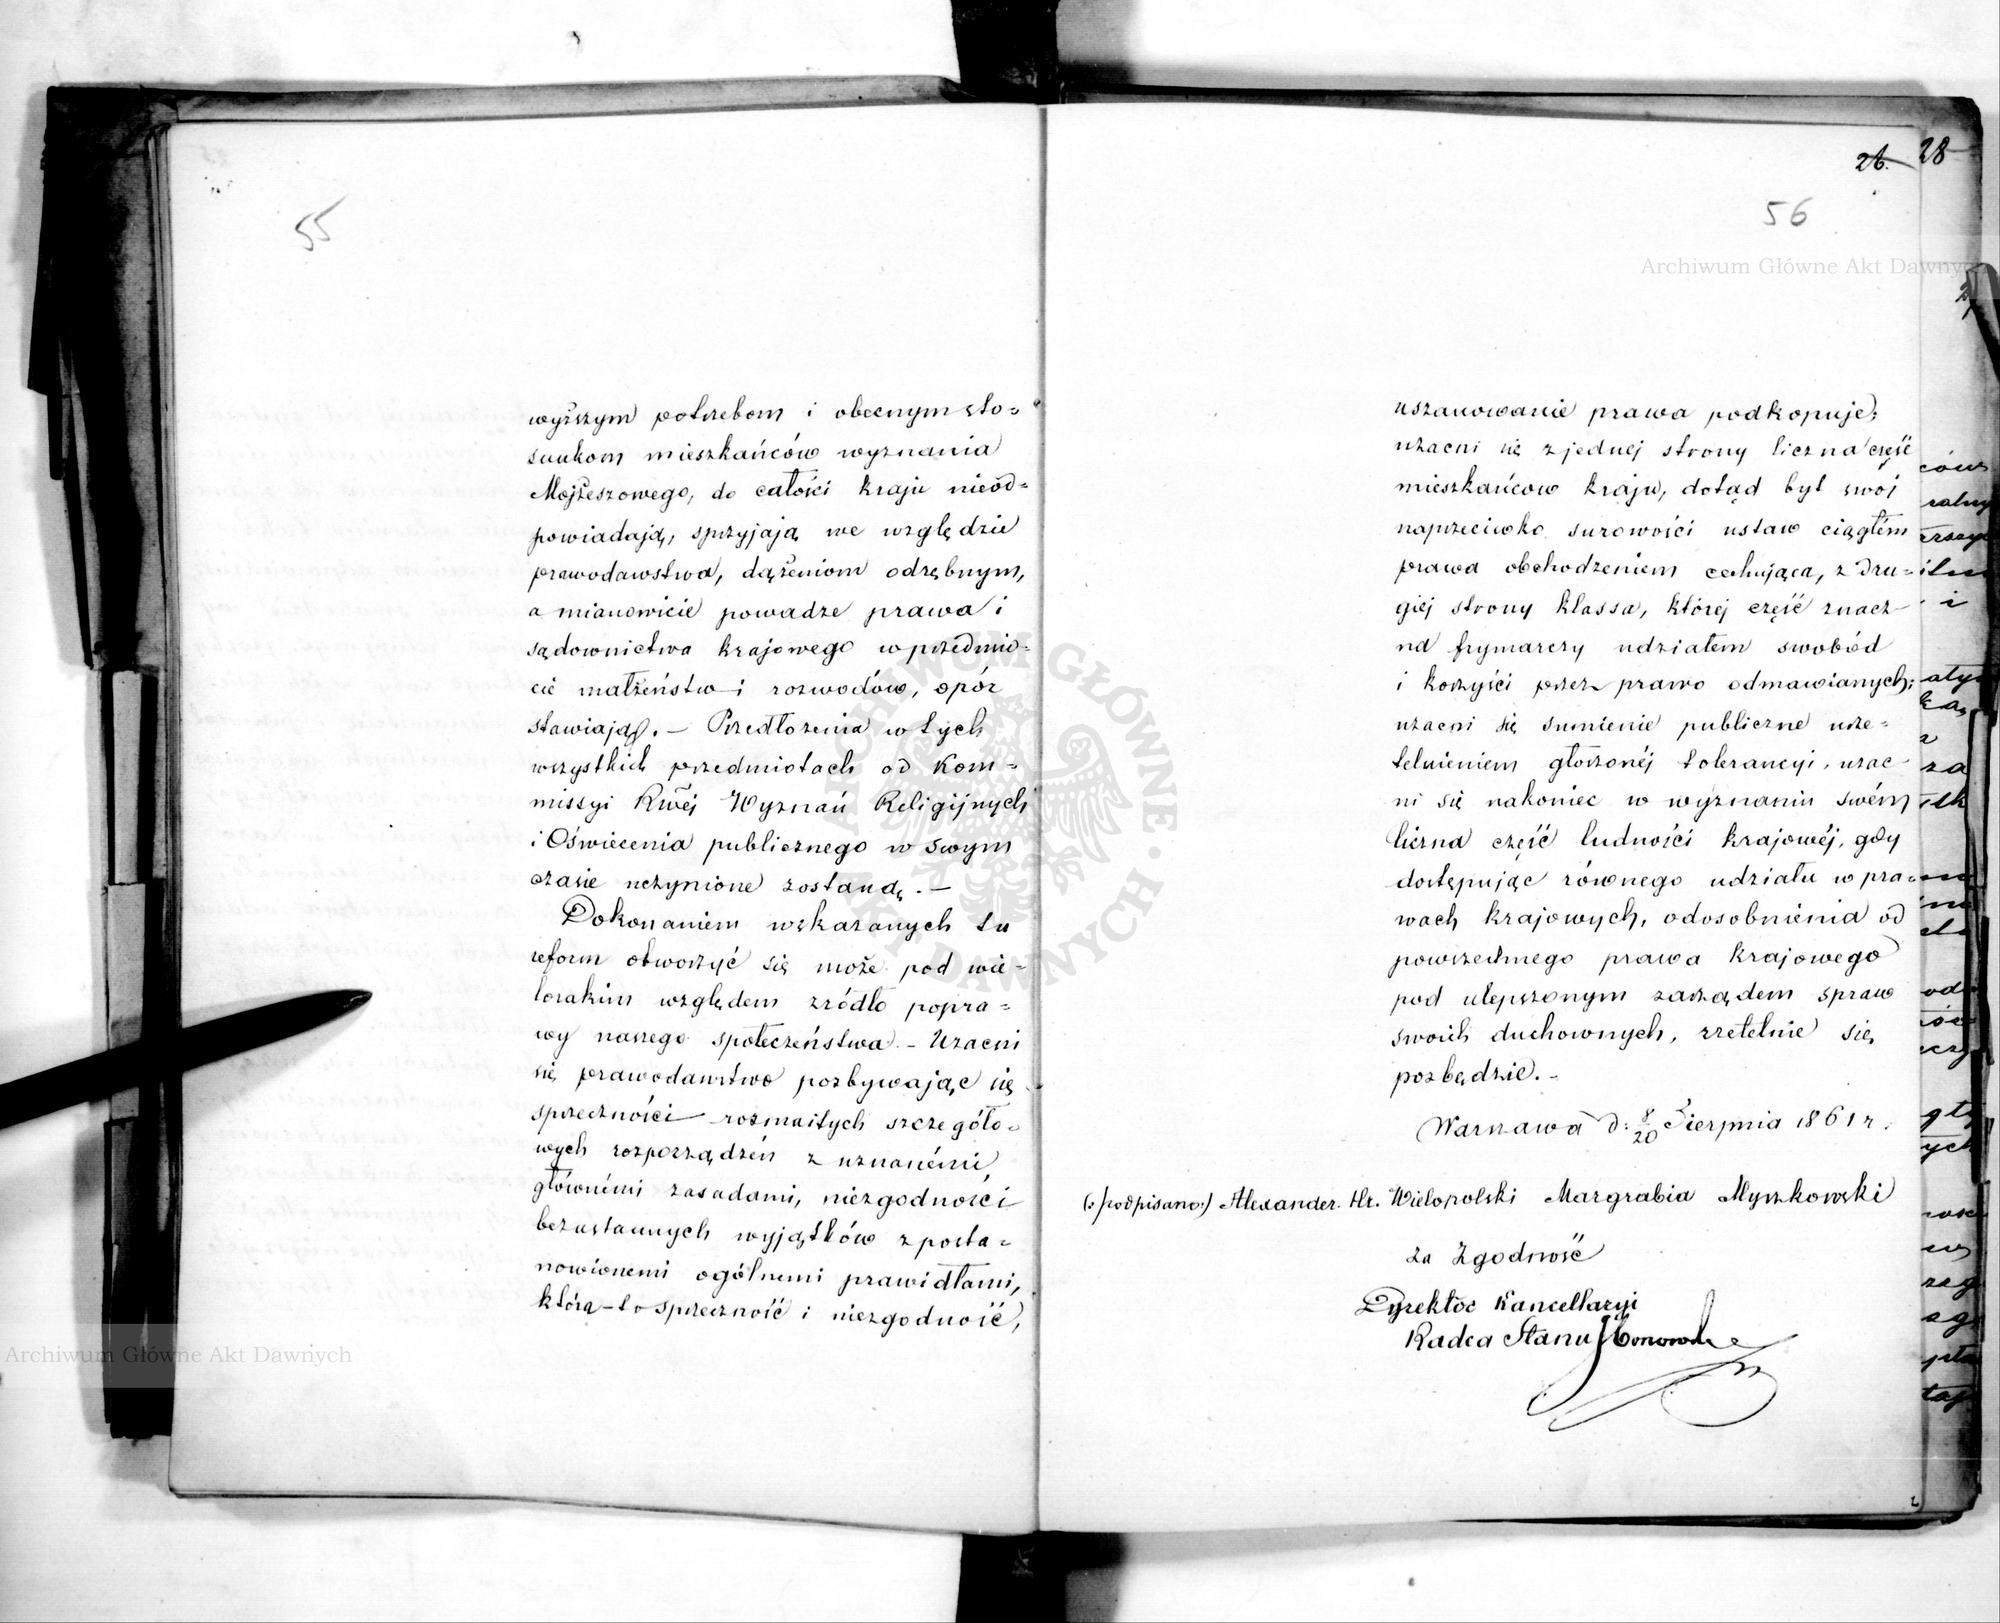 55
wyższym potrzebom i obecnym sto=
sunkom mieszkańców wyznania
Mojżeszowego, do całości kraju nieod=
powiadają, sprzyjają we względzie
prawodawstwa, dążeniom odrębnym,
a mianowicie powadze prawa i
sądownictwa krajowego w przedmio=
cie małżeństw i rozwodów, opór
stawiają. — Przedłożenia w tych
wszystkich przedmiotach od Kom=
missyi Rwéj Wyznań Religijnych
i Oświecenia publicznego w swym
czasie uczynione zostaną. —
Dokonaniem wskazanych tu
reform otworzyć się może pod wie=
lorakim względem zródło popra=
wy naszego społeczeństwa. — Uzacni
się prawodawstwo pozbywając się
sprzeczności rozmaitych szczegóło=
wych rozporządzeń z uznanémi
głównémi zasadami, niezgodności
bezustannych wyjątków z posta=
nowionemi ogólnemi prawidłami,
która-to sprzeczność i niezgodność,
26. 28
56
uszanowanie prawa podkopuje;
uzacni się z jednej strony liczna część
mieszkańcow kraju, dotąd byt swój
naprzeciwko surowości ustaw ciągłém
prawa obchodzeniem cechująca, z dru=
giéj strony klassa, któréj część znacz=
na frymarczy udziałem swobód
i korzyści przez prawo odmawianych;
uzacni się sumienie publiczne urze=
telnieniem głoszonéj tolerancyi, uzac=
ni się nakoniec w wyznaniu swém
liczna część ludności krajowéj, gdy
dostępując równego udziału w pra=
wach krajowych, odosobnienia od
powszechnego prawa krajowego
pod ulepszonym zarządem spraw
swoich duchownych, rzetelnie się
pozbędzie. —
Warszawa d: 8/20 Sierpnia 1861 r.
(:podpisano:) Alexander Hr. Wielopolski Margrabia Myszkowski
za Zgodność
Dyrektor Kancellaryi
Radca Stanu
Archiwum Główne Akt Dawnych
Archiwum Główne Akt Dawnych
ARCHIWUM GŁÓWNE AKT DAWNYCH